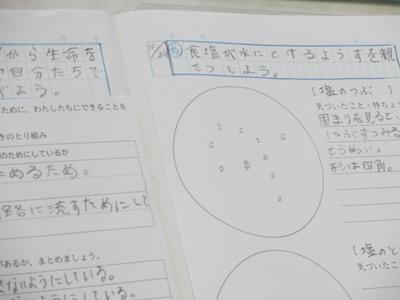 から生命を
自分たちで
よう。
ために、わたしたちにできることを
きのとり組み
のためにしているか
ためるため。
路に流すためにして
があるか、まとめましょう。
さないようにしている。
ないようにしている。
10/20 め 食塩が水にとけるようすを観
さつしよう。
[塩のつぶ]
気づいたこと・特ちょ
固まりを見ると、
1つぶずつみる
とうめい。
形は四角。
[塩のと
気づいたこ